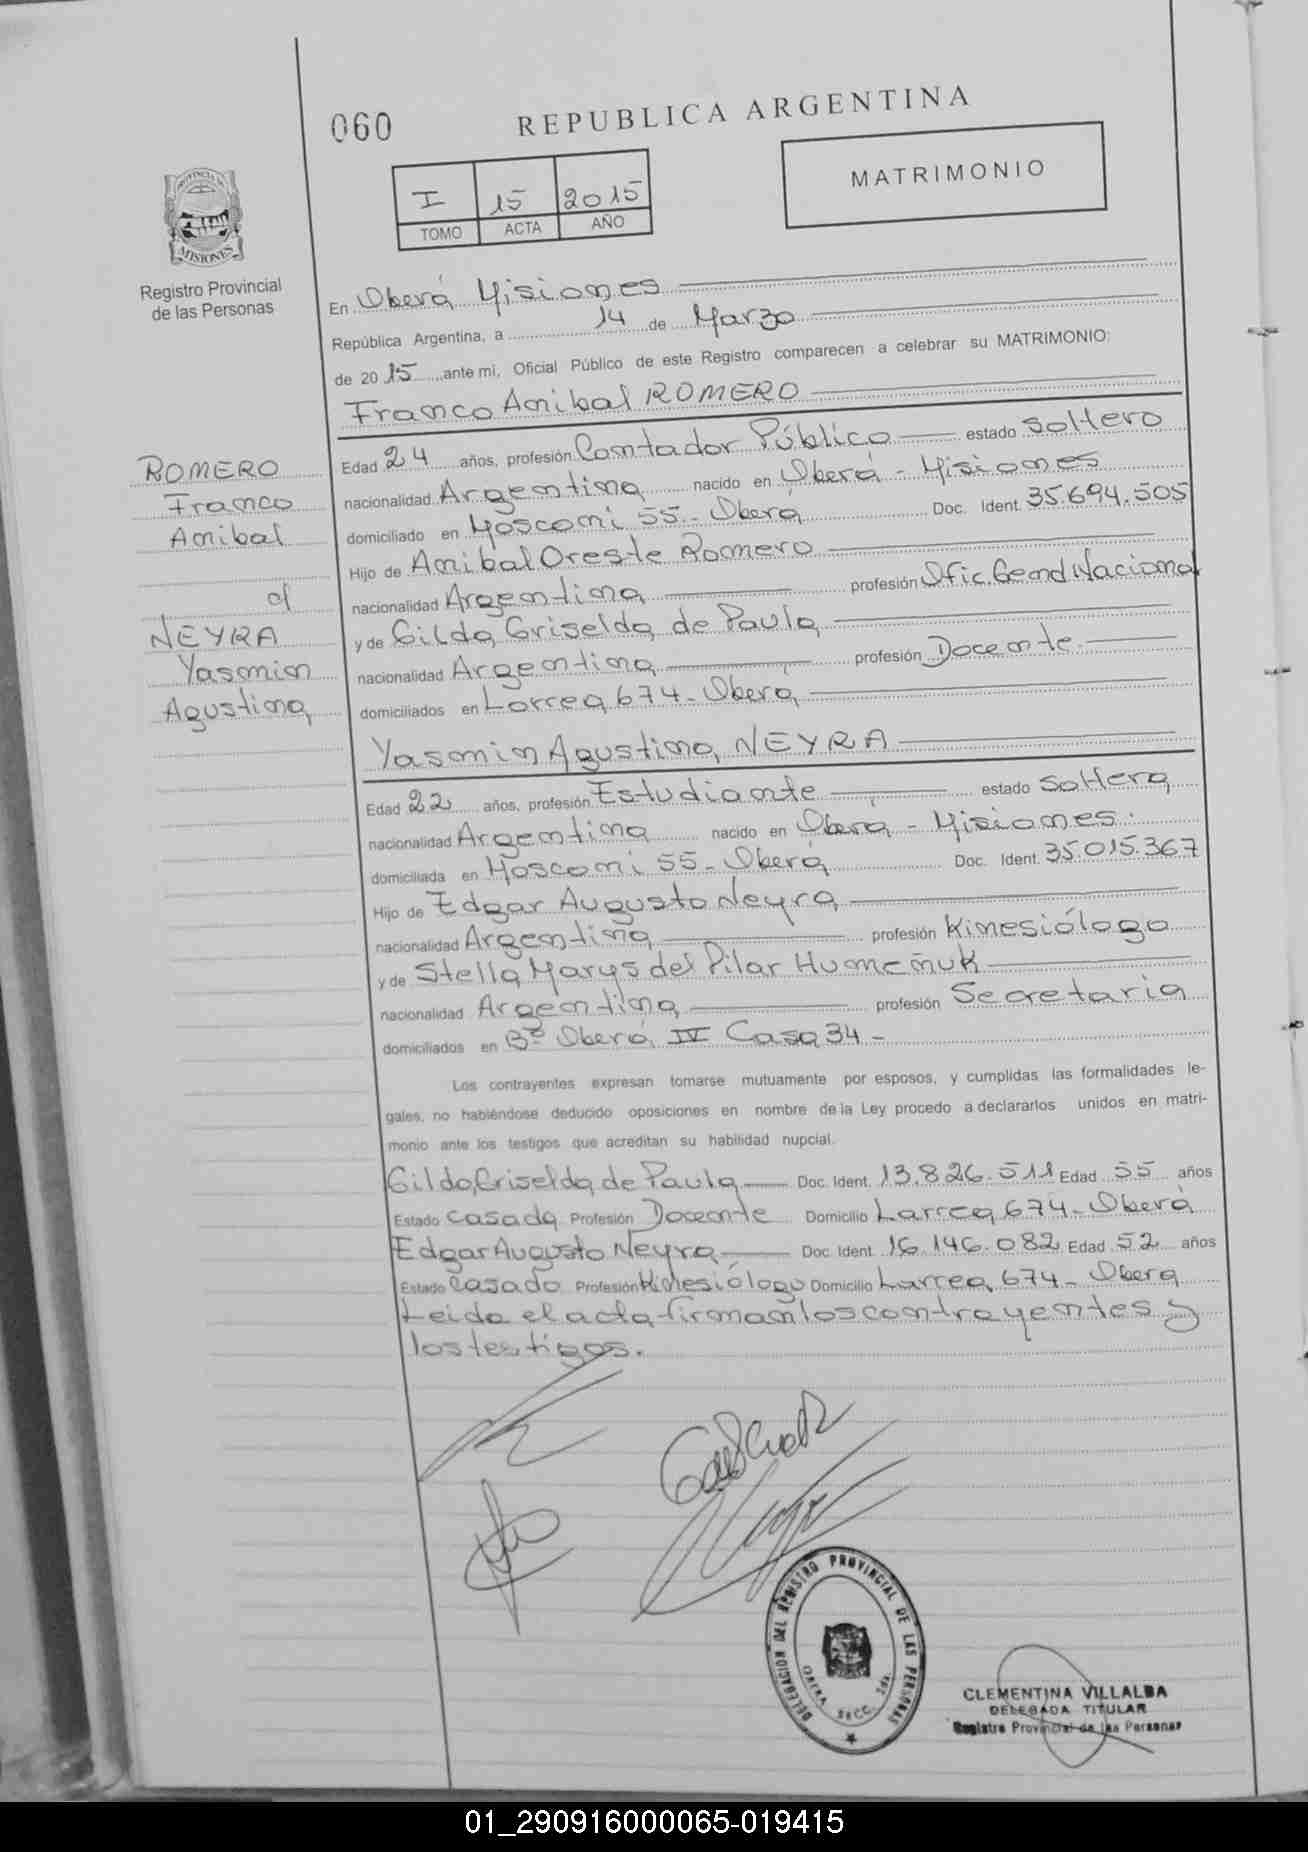 060
REPUBLICA ARGENTINA
MATRIMONIO
I 15 2015
TOMO ACTA AÑO
PROVINCIA DE
MISIONES
Registro Provincial
de las Personas
En Oberá Misiones
República Argentina, a 14 de Marzo
de 2015 ante mi, Oficial Público de este Registro comparecen a celebrar su MATRIMONIO:
Franco Anibal ROMERO
Edad 24 años, profesión Contador Público estado Soltero
nacionalidad Argentina nacido en Oberá - Misiones
domiciliado en Mosconi 55 - Oberá Doc. Ident. 35.694.505
Hijo de Anibal Oreste Romero
nacionalidad Argentina profesión Ofic. Gend Nacional
y de Gilda Griselda de Paula
nacionalidad Argentina profesión Docente.
domiciliados en Larrea 674 - Oberá
ROMERO
Franco
Anibal
c/
NEYRA
Yasmin
Agustina
Yasmin Agustina NEYRA
Edad 22 años, profesión Estudiante estado Soltera
nacionalidad Argentina nacido en Oberá - Misiones.
domiciliada en Mosconi 55 - Oberá Doc. Ident. 35.015.367
Hijo de Edgar Augusto Neyra
nacionalidad Argentina profesión Kinesiólogo
y de Stella Marys del Pilar Humeñuk
nacionalidad Argentina profesión Secretaria
domiciliados en Bº Oberá IV Casa 34 -
Los contrayentes expresan tomarse mutuamente por esposos, y cumplidas las formalidades le-
gales, no habiéndose deducido oposiciones en nombre de la Ley procedo a declararlos unidos en matri-
monio ante los testigos que acreditan su habilidad nupcial.
Gilda Griselda de Paula Doc. Ident. 13.826.511 Edad 55 años
Estado Casada Profesión Docente Domicilio Larrea 674 - Oberá
Edgar Augusto Neyra Doc. Ident. 16.146.082 Edad 52 años
Estado Casado Profesión Kinesiólogo Domicilio Larrea 674 - Oberá
Leida el acta firman los contrayentes y
los testigos.
DELEGACION DEL REGISTRO PROVINCIAL DE LAS PERSONAS
OBERA SECC. 2da.
CLEMENTINA VILLALBA
DELEGADA TITULAR
Registro Provincial de las Personas
01_290916000065-019415